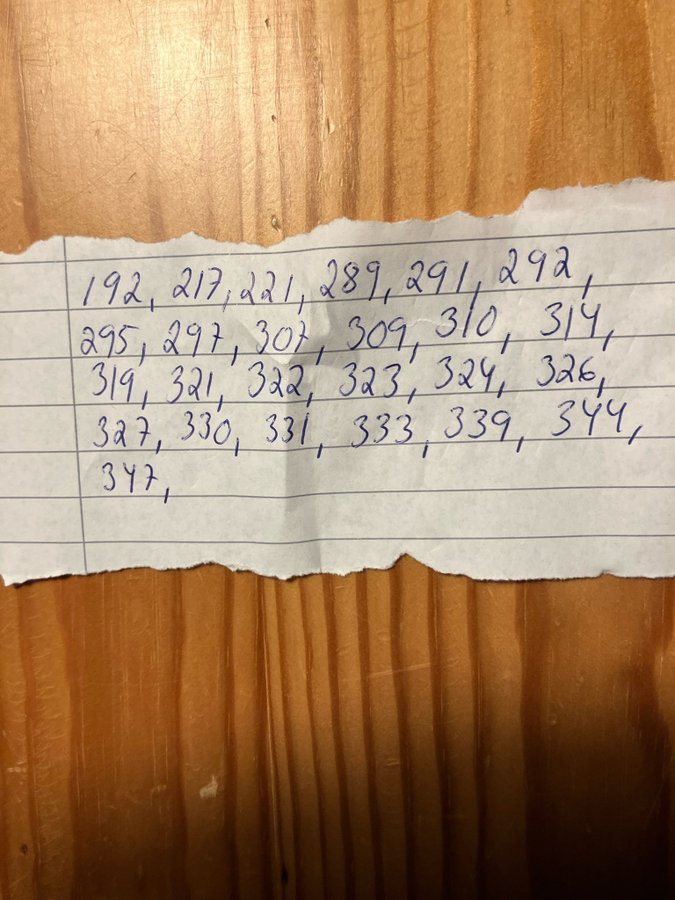 192, 217, 221, 289, 291, 292,
295, 297, 307, 309, 310, 314,
319, 321, 322, 323, 324, 326,
327, 330, 331, 333, 339, 344,
347,